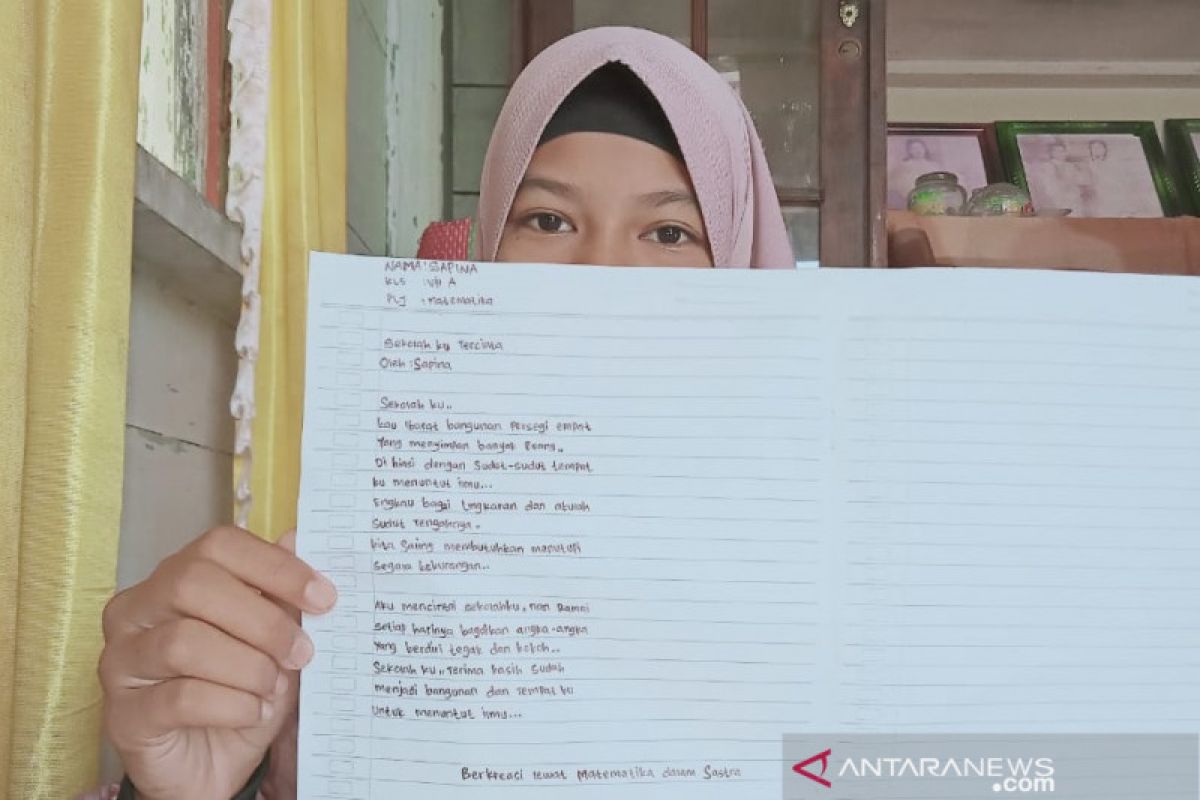 NAMA : SAPINA
KLS : VII A
PLJ : Matematika
Sekolah ku Tercinta
Oleh : Sapina
Sekolah ku..
kau ibarat bangunan Persegi empat
Yang menyimpan banyak Ruang..
Di hiasi dengan Sudut-sudut tempat
ku menuntut ilmu...
Engkau bagai lingkaran dan akulah
Sudut Tengahnya.
kita Saling membutuhkan menutupi
Segala kekurangan..
Aku mencintai sekolahku, nan Ramai
setiap harinya bagaikan angka-angka
Yang berdiri tegak dan kokoh..
Sekolah ku.. Terima kasih sudah
menjadi bangunan dan tempat ku
Untuk menuntut ilmu...
Berkreasi lewat Matematika dalam Sastra
ANTARANEWS
.com